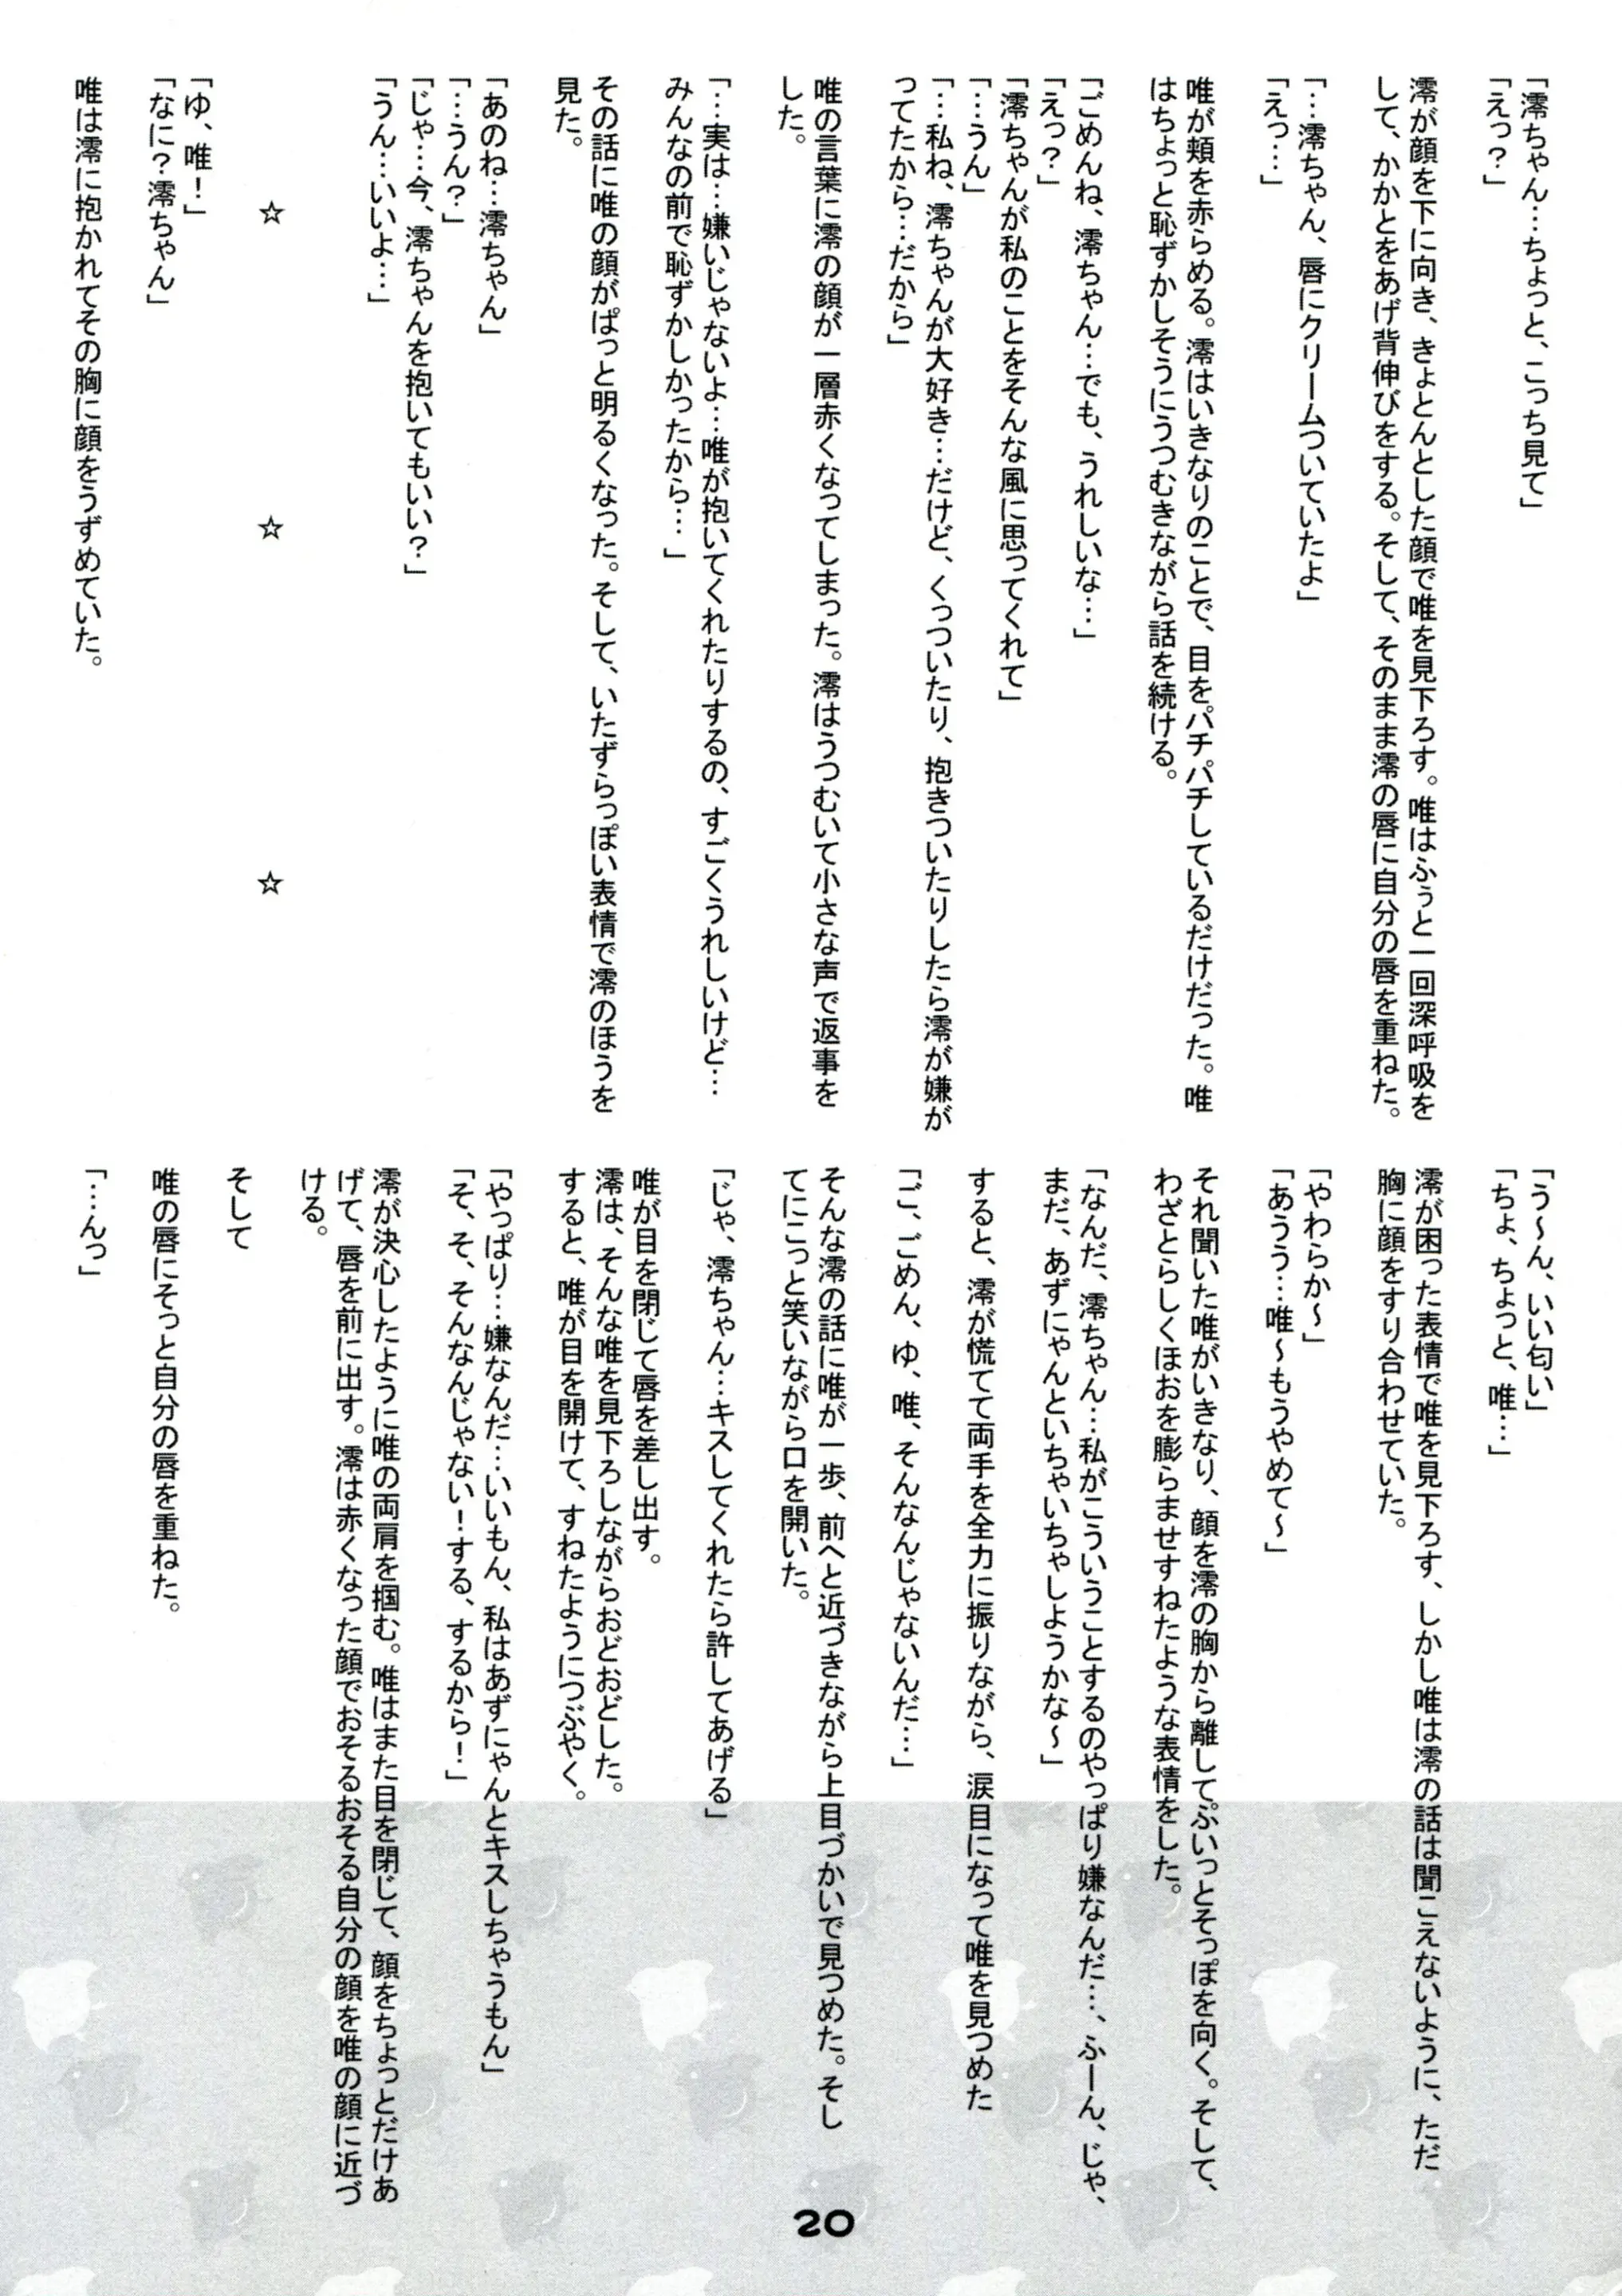 「澪ちゃん…ちょっと、こっち見て」
「えっ？」
澪が顔を下に向き、きょとんとした顔で唯を見下ろす。唯はふぅと一回深呼吸を
して、かかとをあげ背伸びをする。そして、そのまま澪の唇に自分の唇を重ねた。
「…澪ちゃん、唇にクリームついていたよ」
「えっ…」
唯が頬を赤らめる。澪はいきなりのことで、目をパチパチしているだけだった。唯
はちょっと恥ずかしそうにうつむきながら話を続ける。
「ごめんね、澪ちゃん…でも、うれしいな…」
「えっ？」
「澪ちゃんが私のことをそんな風に思ってくれて」
「…うん」
「…私ね、澪ちゃんが大好き…だけど、くっついたり、抱きついたりしたら澪が嫌が
ってたから…だから」
唯の言葉に澪の顔が一層赤くなってしまった。澪はうつむいて小さな声で返事を
した。
「…実は…嫌いじゃないよ…唯が抱いてくれたりするの、すごくうれしいけど…
みんなの前で恥ずかしかったから…」
その話に唯の顔がぱっと明るくなった。そして、いたずらっぽい表情で澪のほうを
見た。
「あのね…澪ちゃん」
「…うん？」
「じゃ…今、澪ちゃんを抱いてもいい？」
「うん…いいよ…」
☆ ☆ ☆
「ゆ、唯！」
「なに？澪ちゃん」
唯は澪に抱かれてその胸に顔をうずめていた。
「う～ん、いい匂い」
「ちょ、ちょっと、唯…」
澪が困った表情で唯を見下ろす、しかし唯は澪の話は聞こえないように、ただ
胸に顔をすり合わせていた。
「やわらか～」
「あうう…唯～もうやめて～」
それ聞いた唯がいきなり、顔を澪の胸から離してぷいっとそっぽを向く。そして、
わざとらしくほおを膨らませすねたような表情をした。
「なんだ、澪ちゃん…私がこういうことするのやっぱり嫌なんだ…、ふーん、じゃ、
まだ、あずにゃんといちゃいちゃしようかな～」
すると、澪が慌てて両手を全力に振りながら、涙目になって唯を見つめた
「ご、ごめん、ゆ、唯、そんなんじゃないんだ…」
そんな澪の話に唯が一歩、前へと近づきながら上目づかいで見つめた。そし
てにこっと笑いながら口を開いた。
「じゃ、澪ちゃん…キスしてくれたら許してあげる」
唯が目を閉じて唇を差し出す。
澪は、そんな唯を見下ろしながらおどおどした。
すると、唯が目を開けて、すねたようにつぶやく。
「やっぱり…嫌なんだ…いいもん、私はあずにゃんとキスしちゃうもん」
「そ、そ、そんなんじゃない！する、するから！」
澪が決心したように唯の両肩を掴む。唯はまた目を閉じて、顔をちょっとだけあ
げて、唇を前に出す。澪は赤くなった顔でおそるおそる自分の顔を唯の顔に近づ
ける。
そして
唯の唇にそっと自分の唇を重ねた。
「…んっ」
20